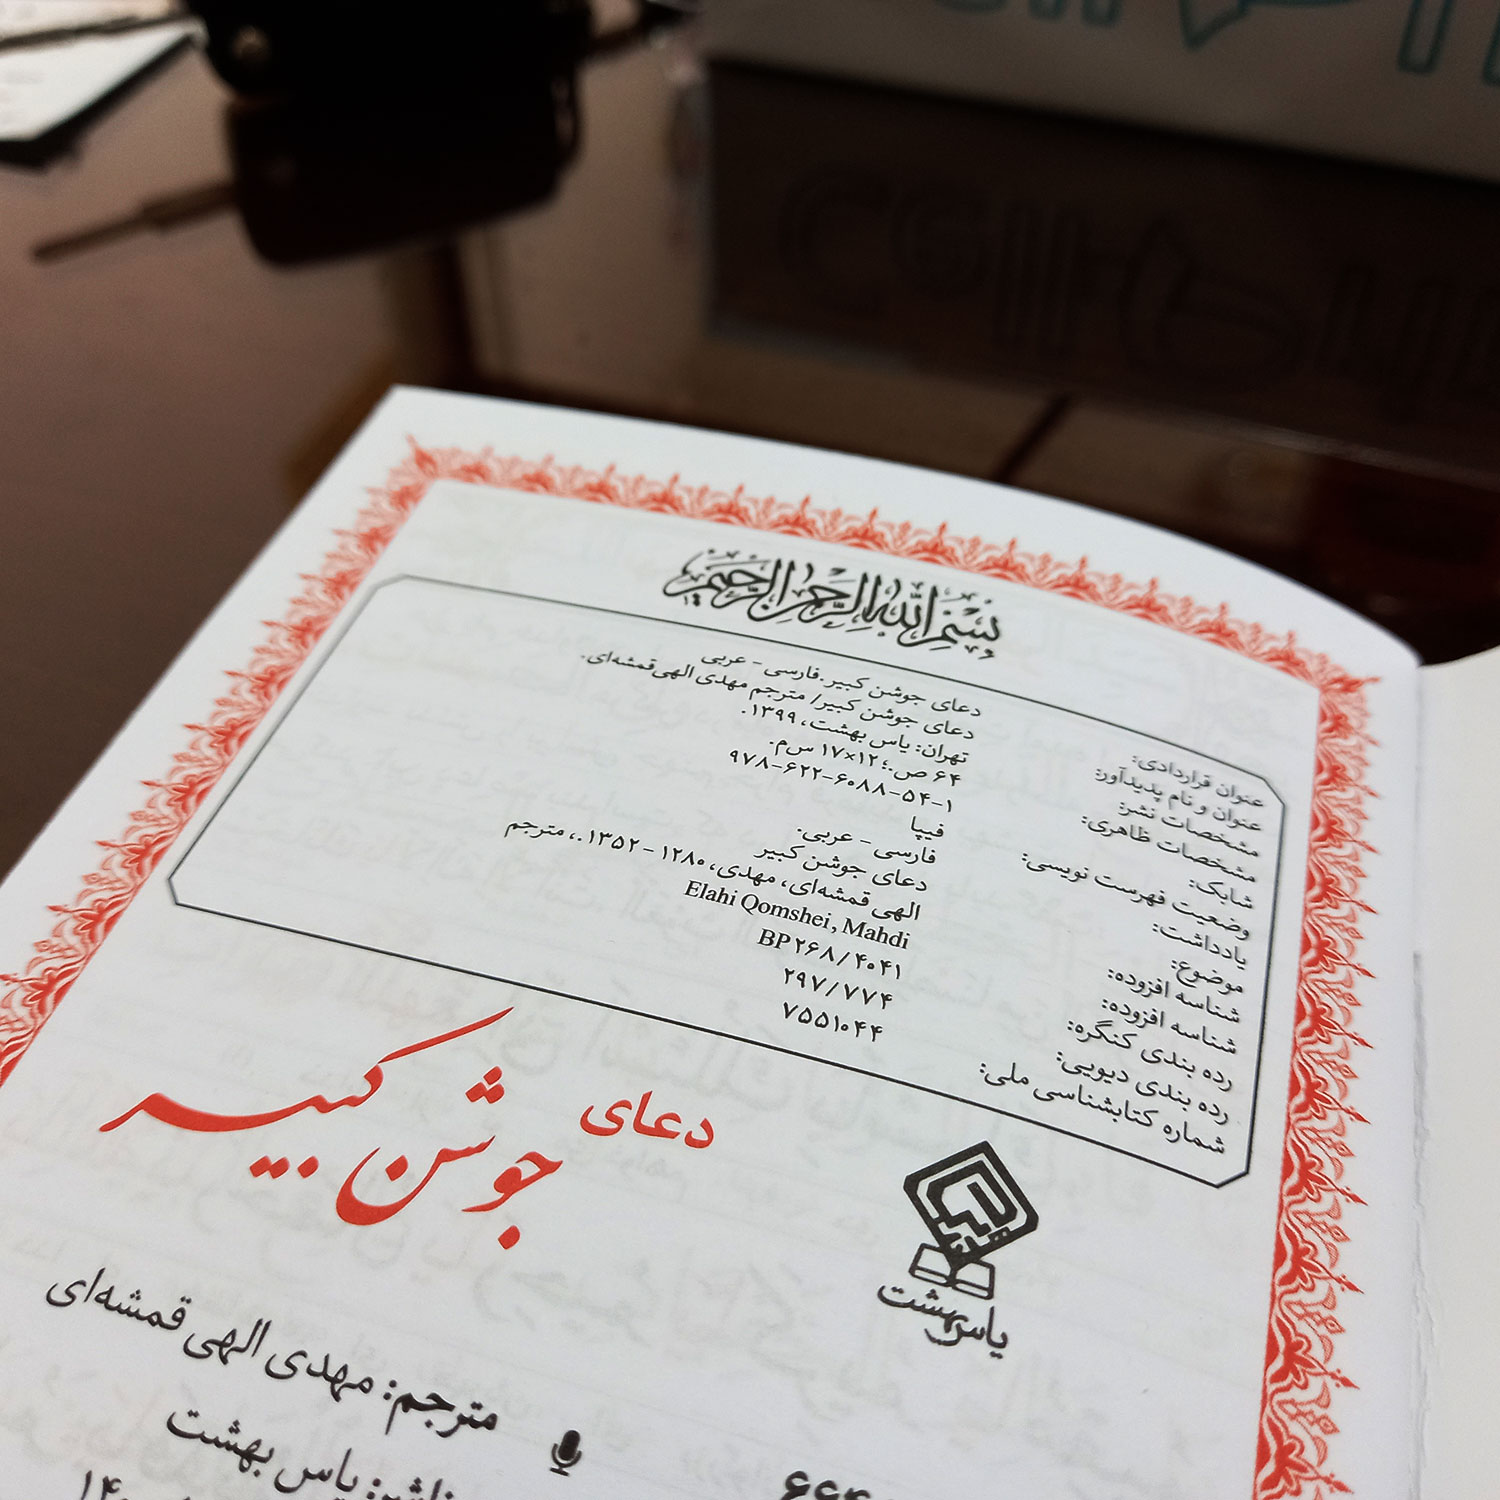 بِسْمِ اللهِ الرَّحْمنِ الرَّحیمِ
عنوان قراردادی: دعای جوشن کبیر.فارسی - عربی
عنوان و نام پدیدآور: دعای جوشن کبیر/ مترجم مهدی الهی‌قمشه‌ای.
مشخصات نشر: تهران: یاس بهشت، ۱۳۹۹.
مشخصات ظاهری: ۶۴ ص.؛ ۱۲×۱۷ س‌م.
شابک: ۹۷۸-۶۲۲-۶۰۸۸-۵۴-۱
وضعیت فهرست نویسی: فیپا
یادداشت: فارسی - عربی.
موضوع: دعای جوشن کبیر
شناسه افزوده: الهی قمشه‌ای، مهدی، ۱۲۸۰ - ۱۳۵۲.، مترجم
شناسه افزوده: Elahi Qomshei, Mahdi
رده بندی کنگره: BP ۲۶۸/۴۰۴۱
رده بندی دیویی: ۲۹۷/۷۷۴
شماره کتابشناسی ملی: ۷۵۵۱۰۴۴
دعای
جوشن کبیر
یاس بهشت
مترجم: مهدی الهی قمشه‌ای
ناشر: یاس بهشت